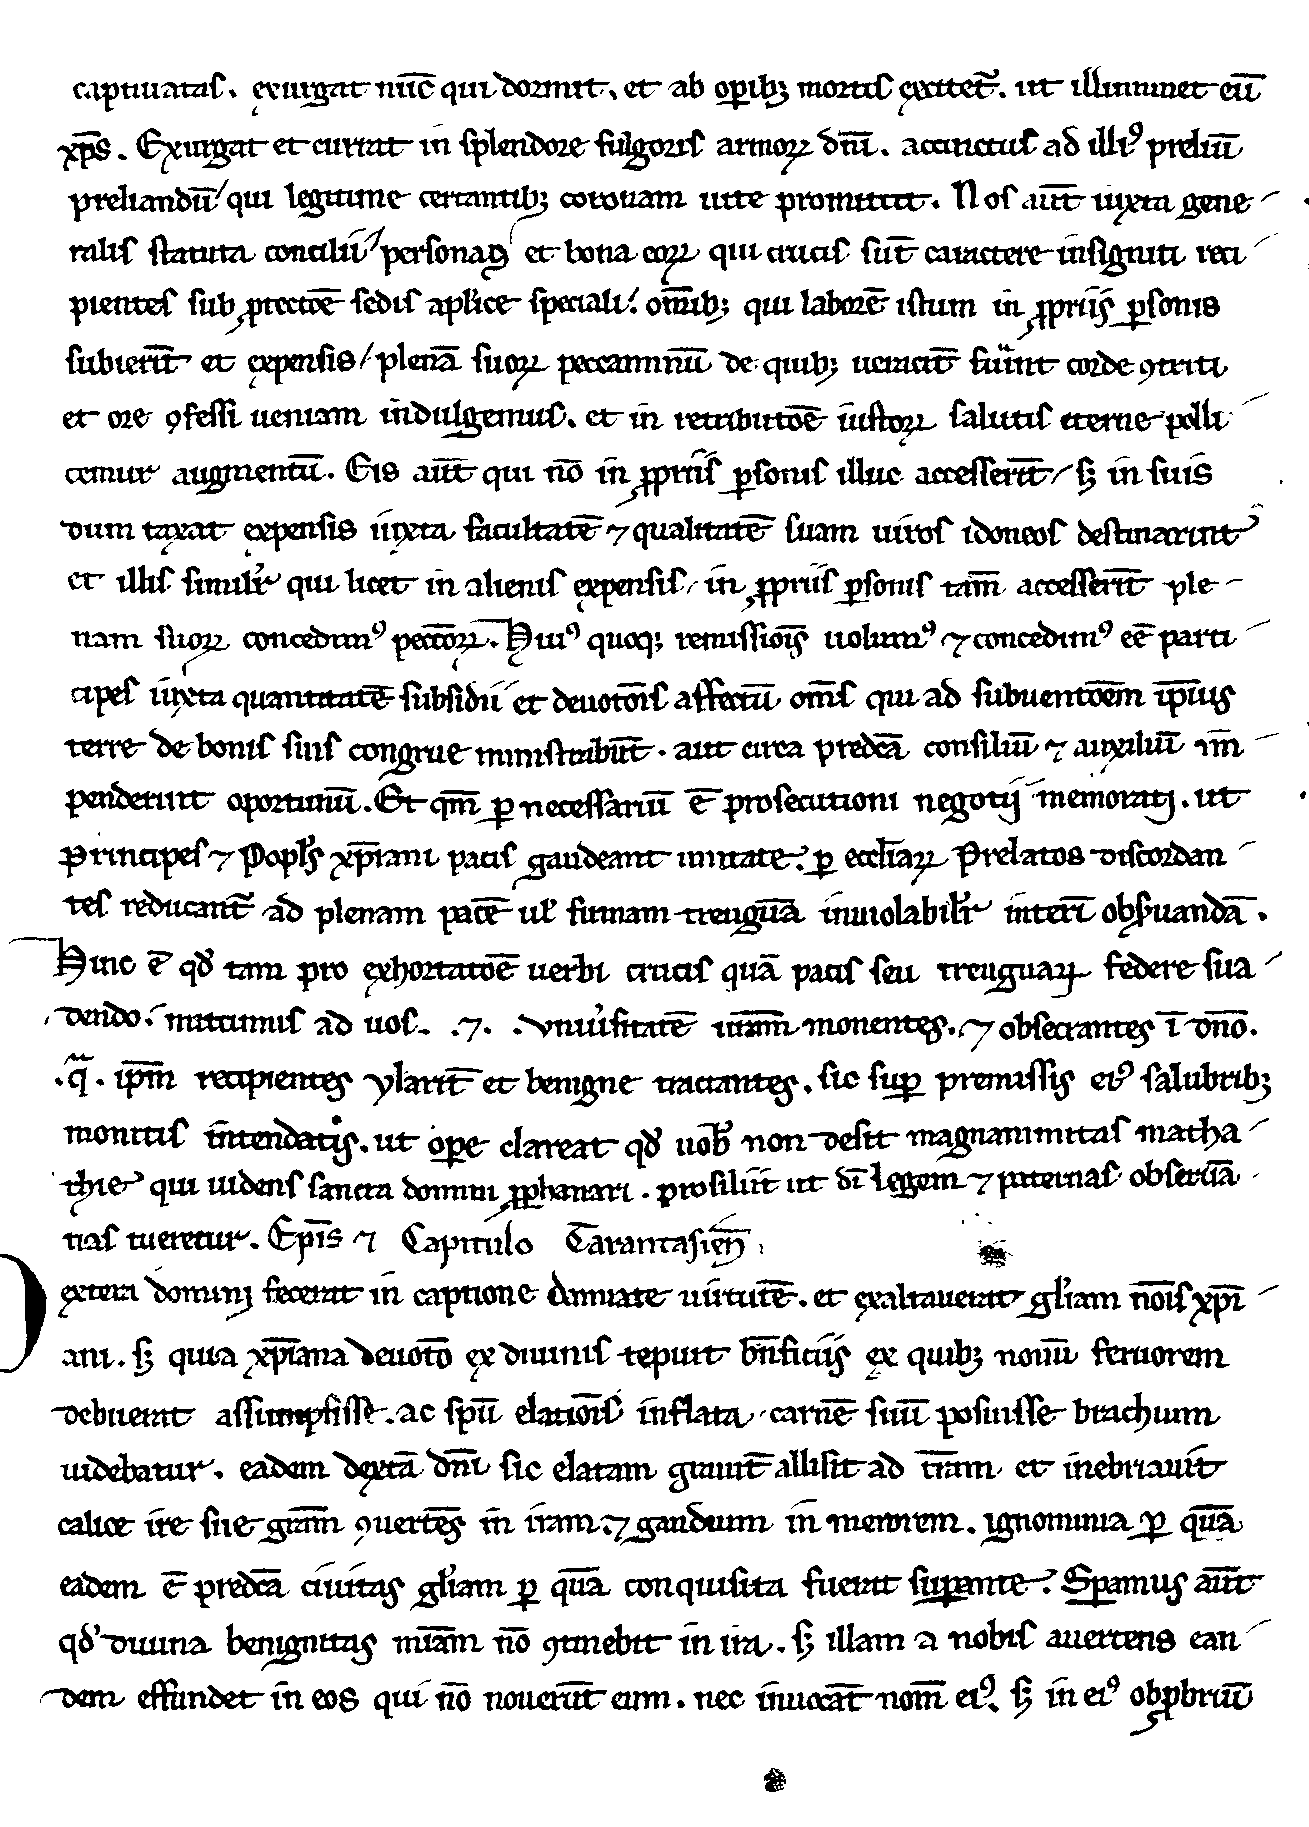 captiuatas. exurgat nūc qui dormit. et ab op̄ibꝫ mortis excitet᷑. ut illuminet eū
xp̄s. Exurgat et currat in splendore fulgoris armoꝝ dn̄i. accinctus ad illiꝰ preliū
preliandū/ qui legitime certantibꝫ coronam uite promittit. Nos aūt iuxta gene-
ralis statuta concilii/ personas et bona eoꝝ qui crucis sūt caractere insigniti reci-
pientes sub ꝓtectōe sedis aplice speciali. om̄ibꝫ qui laborē istum in ꝓpriis ꝑsonis
subierīt et expensis/ plenā suoꝝ peccaminū de quibꝫ ueracit̄ fuīnt corde ꝯtriti
et ore ꝯfessi ueniam indulgemus. et in retributōe iustoꝝ salutis eterne polli-
cemur augmentū. Eis aūt qui nō in ꝓpriis ꝑsonis illuc accesserīt/ sꝫ in suis
dum taxat expensis iuxta facultatē ⁊ qualitatē suam uiros idoneos destinarint
et illis similr̄ qui licet in alienis expensis, in ꝓpriis ꝑsonis tam̄ accesserīt ple-
nam suoꝝ concedimꝰ pecc̄oꝝ. Huiꝰ quoqꝫ remissiōis uolumꝰ ⁊ concedimꝰ eē parti-
cipes iuxta quantitatē subsidii et deuotōis affectū om̄s qui ad subuentōem ip̄ius
terre de bonis suis congrue ministrabūt. aut circa predc̄ā consiliū ⁊ auxiliū im̄-
penderint oportunū. Et qm̄ ꝑ necessariū ē prosecutioni negotij memorati. ut
Principes ⁊ Popl̄s xp̄iani pacis gaudeant unitate. ꝑ eccl̄iaꝝ Prelatos discordan-
tes reducant᷑ ad plenam pacē ul̓ firmam treuguā inuiolabilr̄ interī obs̓uandā.
Hinc ē qđ tam pro exhortatōe uerbi crucis quā pacis seu treuguaꝝ federe sua-
dendo. mittimus ad uos. .⁊. Vniu̓sitatē ur̄am monentes. ⁊ obsecrantes ī dn̄o.
.qͣ. ip̄m recipientes ylarit̄ et benigne tractantes. sic suꝑ premissis eiꝰ salubribꝫ
monitis intendatis. ut oꝑe clareat qđ uob̄ non desit magnanimitas matha-
thie qui uidens sancta domini ꝓphanari. prosiliit ut dī legem ⁊ paternas obseruā-
tias tueretur. Ep̄is ⁊ Capitulo Tarantasien̄
Dextera domini fecerat in captione damiate uirtutē. et exaltauerat gl̄iam nōis xp̄i-
ani. sꝫ quia xp̄iana deuotō ex diuinis tepuit bn̄ficiis ex quibꝫ nouū feruorem
debuerat assumpsisse. ac spū elatiōis inflata carnē suū posuisse brachium
uidebatur. eadem dextā dn̄i sic elatam grauit̄ allisit ad t̄ram et inebriauit
calice ire sue gr̄am ꝯuertēs in iram. ⁊ gaudium in merorem. ignominia ꝑ quā
eadem ē predc̄ā ciuitas gl̄iam ꝑ quā conquisita fuerat suꝑante. Sꝑamus aūt
qđ diuina benignitas mīam nō ꝯtinebit in ira. sꝫ illam a nobis auertens ean-
dem effundet in eos qui nō nouerūt eum. nec inuocāt nom̄ eiꝰ. sꝫ in eiꝰ obꝓbriū